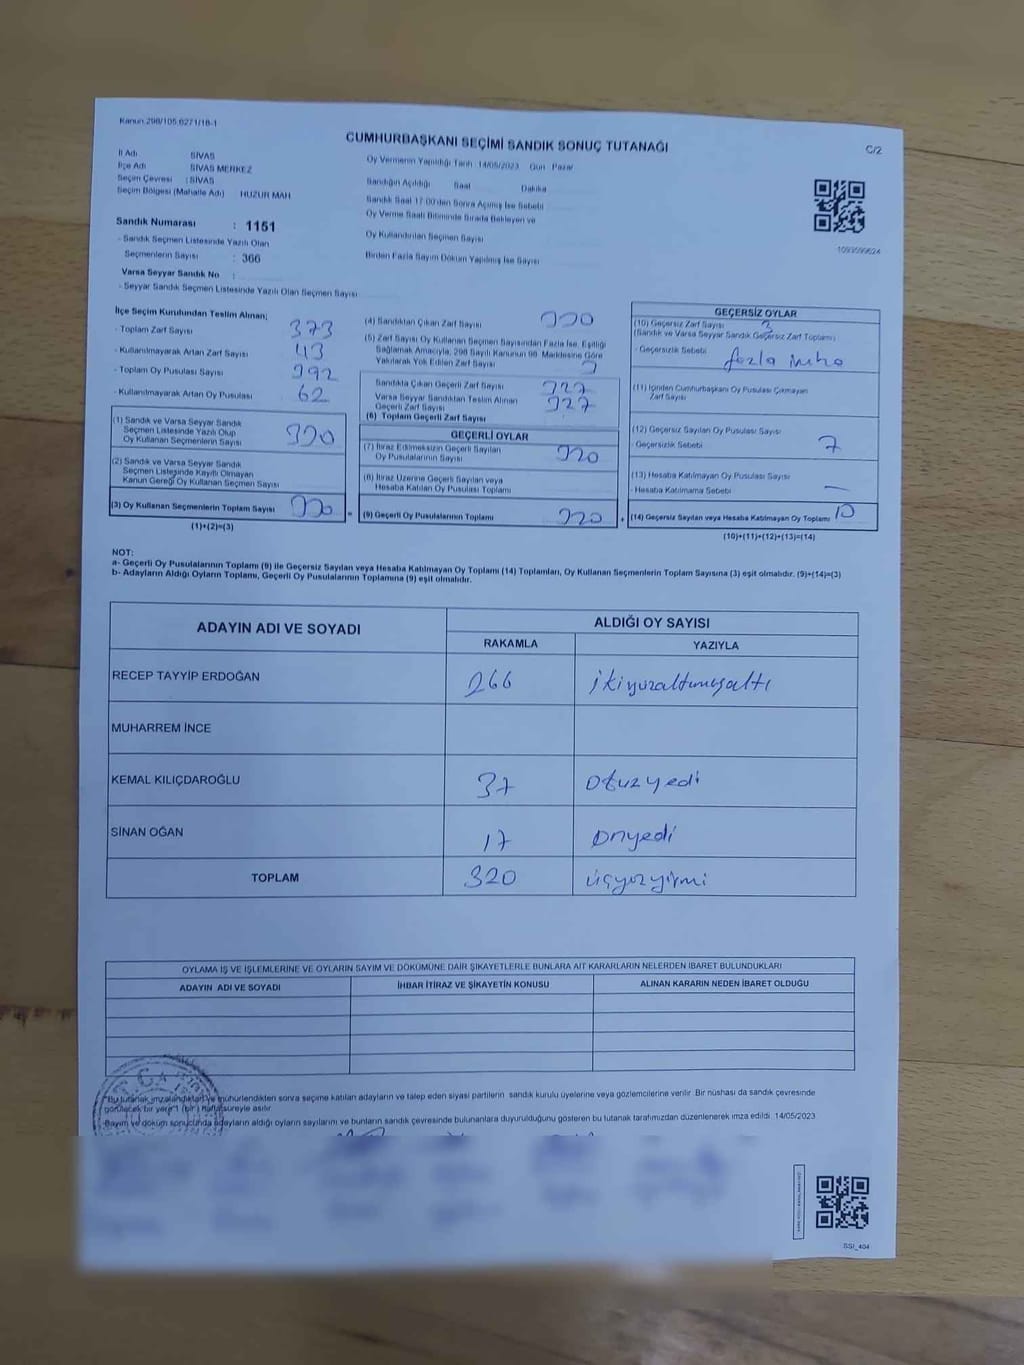 Kanun.298/105.6271/18-1
CUMHURBAŞKANI SEÇİMİ SANDIK SONUÇ TUTANAĞI
C/2
İl Adı SİVAS
İlçe Adı SİVAS MERKEZ
Seçim Çevresi : SİVAS
Seçim Bölgesi (Mahalle Adı) HUZUR MAH
Oy Vermenin Yapıldığı Tarih 14/05/2023 Gün Pazar
Sandığın Açıldığı Saat Dakika
Sandık Saat 17:00'den Sonra Açılmış İse Sebebi
Oy Verme Saati Bitiminde Sırada Bekleyen ve
Oy Kullandırılan Seçmen Sayısı
Birden Fazla Sayım Döküm Yapılmış İse Sayısı
1093599624
Sandık Numarası : 1151
- Sandık Seçmen Listesinde Yazılı Olan
Seçmenlerin Sayısı : 366
Varsa Seyyar Sandık No :
- Seyyar Sandık Seçmen Listesinde Yazılı Olan Seçmen Sayısı
İlçe Seçim Kurulundan Teslim Alınan;
- Toplam Zarf Sayısı 373
- Kullanılmayarak Artan Zarf Sayısı 43
- Toplam Oy Pusulası Sayısı 392
- Kullanılmayarak Artan Oy Pusulası 62
(1) Sandık ve Varsa Seyyar Sandık
Seçmen Listesinde Yazılı Olup
Oy Kullanan Seçmenlerin Sayısı 330
(2) Sandık ve Varsa Seyyar Sandık
Seçmen Listesinde Kayıtlı Olmayan
Kanun Gereği Oy Kullanan Seçmen Sayısı
(3) Oy Kullanan Seçmenlerin Toplam Sayısı 330
(1)+(2)=(3)
(4) Sandıktan Çıkan Zarf Sayısı 330
(5) Zarf Sayısı Oy Kullanan Seçmen Sayısından Fazla İse, Eşitliği
Sağlamak Amacıyla, 298 Sayılı Kanunun 98. Maddesine Göre
Yakılarak Yok Edilen Zarf Sayısı
Sandıkta Çıkan Geçerli Zarf Sayısı 327
Varsa Seyyar Sandıktan Teslim Alınan
Geçerli Zarf Sayısı 327
(6) Toplam Geçerli Zarf Sayısı
GEÇERLİ OYLAR
(7) İtiraz Edilmeksizin Geçerli Sayılan
Oy Pusulalarının Sayısı 320
(8) İtiraz Üzerine Geçerli Sayılan veya
Hesaba Katılan Oy Pusulası Toplamı
= (9) Geçerli Oy Pusulalarının Toplamı 320
GEÇERSİZ OYLAR
(10) Geçersiz Zarf Sayısı 3
(Sandık ve Varsa Seyyar Sandık Geçersiz Zarf Toplamı)
- Geçersizlik Sebebi fazla
(11) İçinden Cumhurbaşkanı Oy Pusulası Çıkmayan
Zarf Sayısı
(12) Geçersiz Sayılan Oy Pusulası Sayısı
- Geçersizlik Sebebi 7
(13) Hesaba Katılmayan Oy Pusulası Sayısı
- Hesaba Katılmama Sebebi —
+ (14) Geçersiz Sayılan veya Hesaba Katılmayan Oy Toplamı 10
(10)+(11)+(12)+(13)=(14)
NOT:
a- Geçerli Oy Pusulalarının Toplamı (9) ile Geçersiz Sayılan veya Hesaba Katılmayan Oy Toplamı (14) Toplamları, Oy Kullanan Seçmenlerin Toplam Sayısına (3) eşit olmalıdır. (9)+(14)=(3)
b- Adayların Aldığı Oyların Toplamı, Geçerli Oy Pusulalarının Toplamına (9) eşit olmalıdır.
ADAYIN ADI VE SOYADI
ALDIĞI OY SAYISI
RAKAMLA YAZIYLA
RECEP TAYYİP ERDOĞAN 266 ikiyüzaltmışaltı
MUHARREM İNCE
KEMAL KILIÇDAROĞLU 37 otuzyedi
SİNAN OĞAN 17 onyedi
TOPLAM 320 üçyüzyirmi
OYLAMA İŞ VE İŞLEMLERİNE VE OYLARIN SAYIM VE DÖKÜMÜNE DAİR ŞİKAYETLERLE BUNLARA AİT KARARLARIN NELERDEN İBARET BULUNDUKLARI
ADAYIN ADI VE SOYADI
İHBAR İTİRAZ VE ŞİKAYETİN KONUSU
ALINAN KARARIN NEDEN İBARET OLDUĞU
*Bu tutanak imzalandıktan ve mühürlendikten sonra seçime katılan adayların ve talep eden siyasi partilerin sandık kurulu üyelerine veya gözlemcilerine verilir. Bir nüshası da sandık çevresinde
görülecek bir yere 1 (bir) hafta süreyle asılır.
-Sayım ve döküm sonucunda adayların aldığı oyların sayılarını ve bunların sandık çevresinde bulunanlara duyurulduğunu gösteren bu tutanak tarafımızdan düzenlenerek imza edildi. 14/05/2023
SSI_404